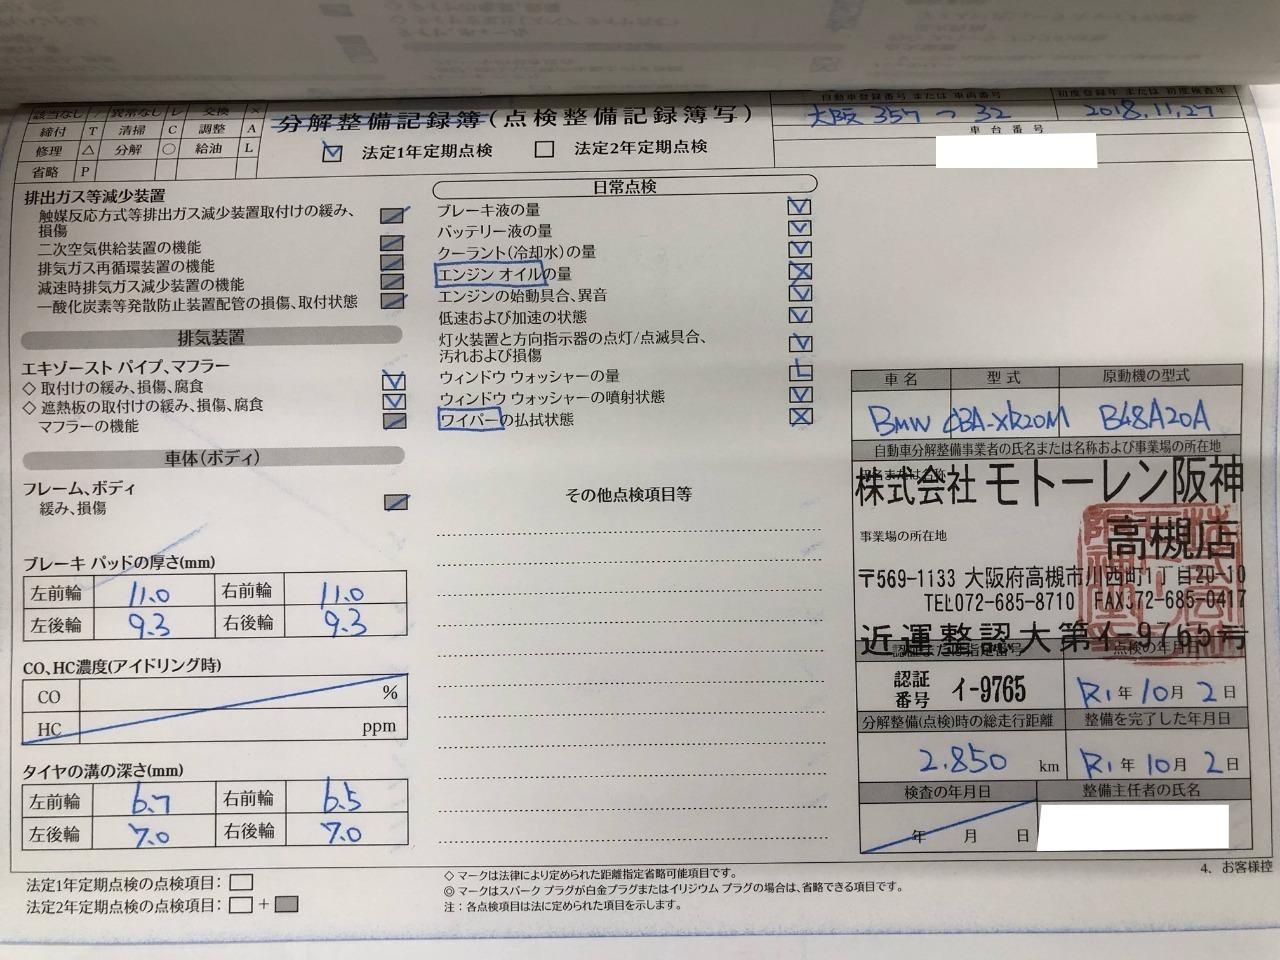 該当なし / 異常なし レ 交換 ×
締付 T 清掃 C 調整 A
修理 △ 分解 ○ 給油 L
省略 P
分解整備記録簿(点検整備記録簿写)
レ 法定1年定期点検 法定2年定期点検
自動車登録番号 または 車両番号
初度登録年 または 初度検査年
大阪 357 つ 32
2018.11.27
車台番号
排出ガス等減少装置
触媒反応方式等排出ガス減少装置取付けの緩み、
損傷
二次空気供給装置の機能
排気ガス再循環装置の機能
減速時排気ガス減少装置の機能
一酸化炭素等発散防止装置配管の損傷、取付状態
排気装置
エキゾースト パイプ、マフラー
◇ 取付けの緩み、損傷、腐食 レ
◇ 遮熱板の取付けの緩み、損傷、腐食 レ
マフラーの機能
車体(ボディ)
フレーム、ボディ
緩み、損傷
ブレーキ パッドの厚さ(mm)
左前輪 11.0 右前輪 11.0
左後輪 9.3 右後輪 9.3
CO、HC濃度(アイドリング時)
CO %
HC ppm
タイヤの溝の深さ(mm)
左前輪 6.7 右前輪 6.5
左後輪 7.0 右後輪 7.0
法定1年定期点検の点検項目:
法定2年定期点検の点検項目: +
日常点検
ブレーキ液の量 レ
バッテリー液の量 レ
クーラント(冷却水)の量 レ
エンジン オイルの量 ×
エンジンの始動具合、異音 レ
低速および加速の状態 レ
灯火装置と方向指示器の点灯/点滅具合、
汚れおよび損傷 レ
ウィンドウ ウォッシャーの量 L
ウィンドウ ウォッシャーの噴射状態 レ
ワイパーの払拭状態 ×
その他点検項目等
◇ マークは法律により定められた距離指定省略可能項目です。
◎ マークはスパーク プラグが白金プラグまたはイリジウム プラグの場合は、省略できる項目です。
注:各点検項目は法に定められた項目を示します。
車名 型式 原動機の型式
BMW CBA-XR20M B48A20A
自動車分解整備事業者の氏名または名称および事業場の所在地
株式会社 モトーレン阪神
高槻店
事業場の所在地
〒569-1133 大阪府高槻市川西町1丁目20-10
TEL072-685-8710 FAX072-685-0417
近運整認大第イ-9765号
認証または指定番号
点検の年月日
認証
番号 イ-9765
R1年10月2日
分解整備(点検)時の総走行距離 整備を完了した年月日
2.850 km
R1年10月2日
検査の年月日 整備主任者の氏名
年 月 日
4. お客様控